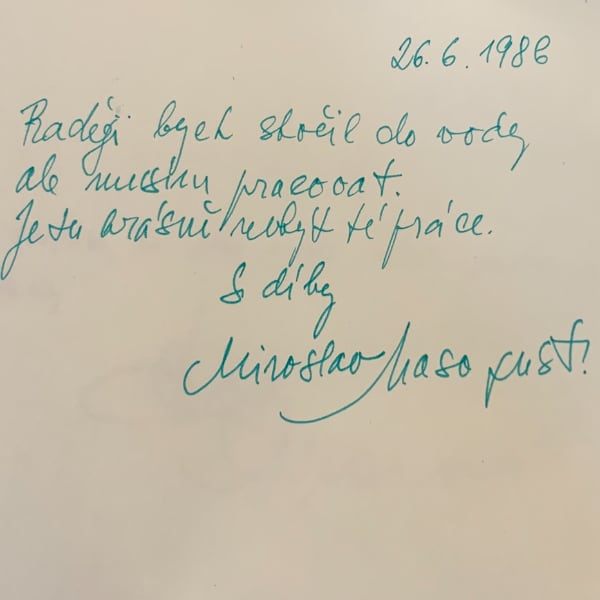 26. 6. 1986
Raději bych skočil do vody
ale musím pracovat.
Je tu krásně nebýt té práce.
S díky
Miroslav Masopust!